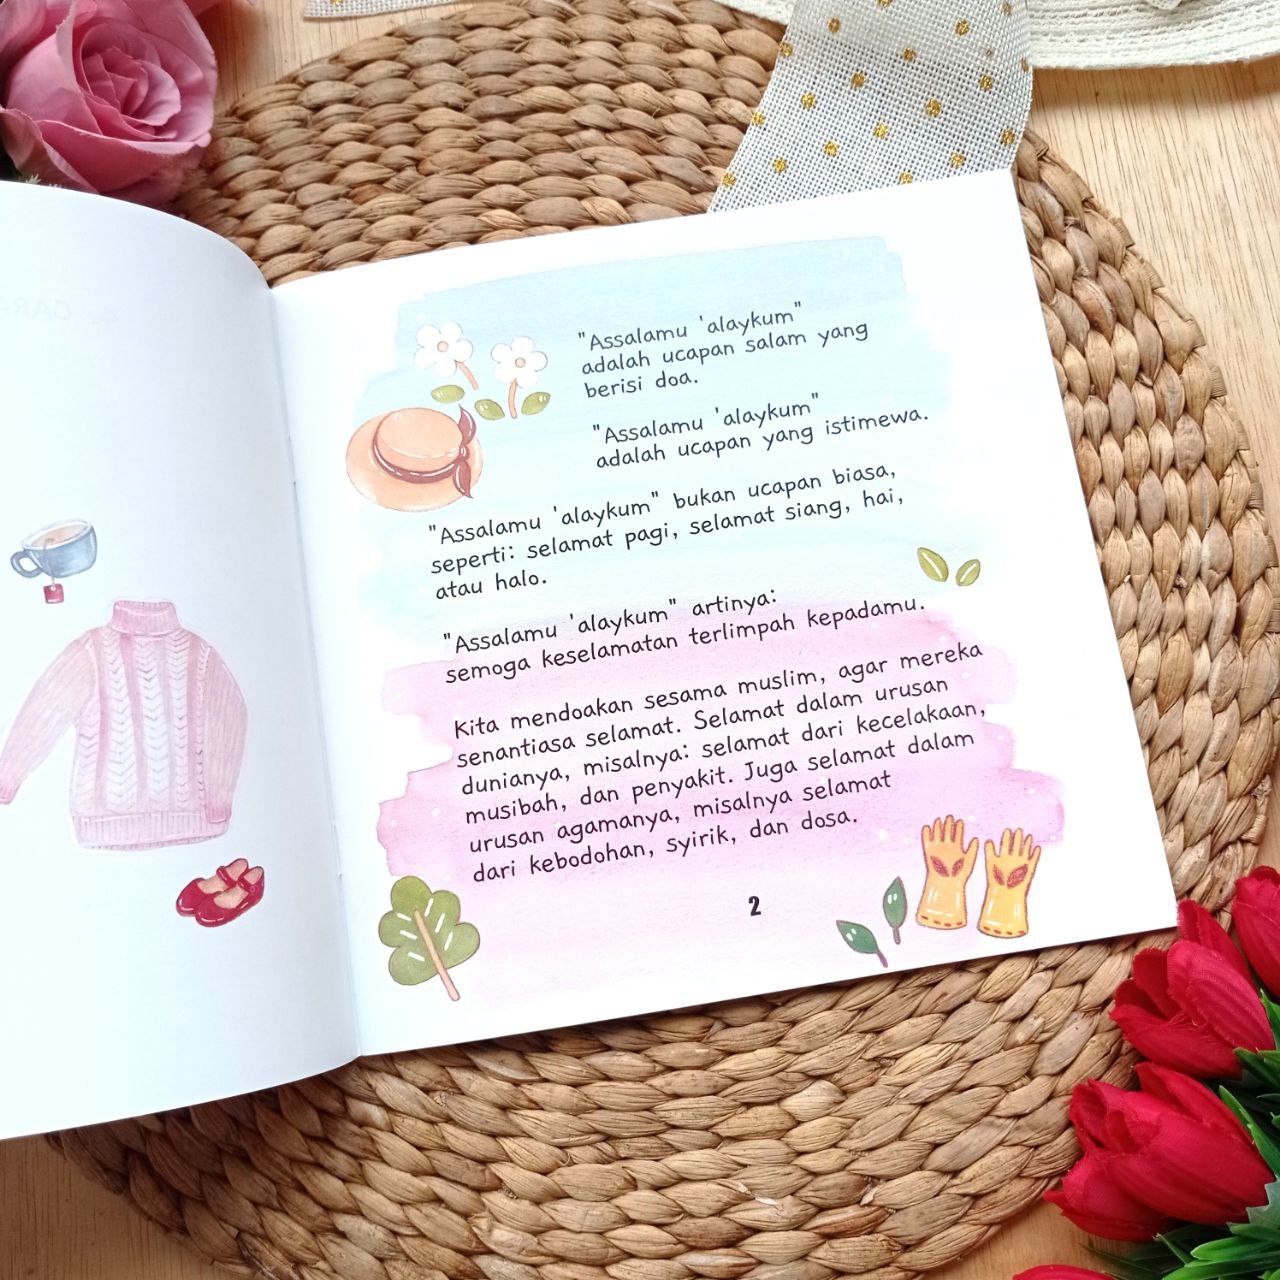 "Assalamu 'alaykum"
adalah ucapan salam yang
berisi doa.
"Assalamu 'alaykum"
adalah ucapan yang istimewa.
"Assalamu 'alaykum" bukan ucapan biasa,
seperti: selamat pagi, selamat siang, hai,
atau halo.
"Assalamu 'alaykum" artinya:
semoga keselamatan terlimpah kepadamu.
Kita mendoakan sesama muslim, agar mereka
senantiasa selamat. Selamat dalam urusan
dunianya, misalnya: selamat dari kecelakaan,
musibah, dan penyakit. Juga selamat dalam
urusan agamanya, misalnya selamat
dari kebodohan, syirik, dan dosa.
2